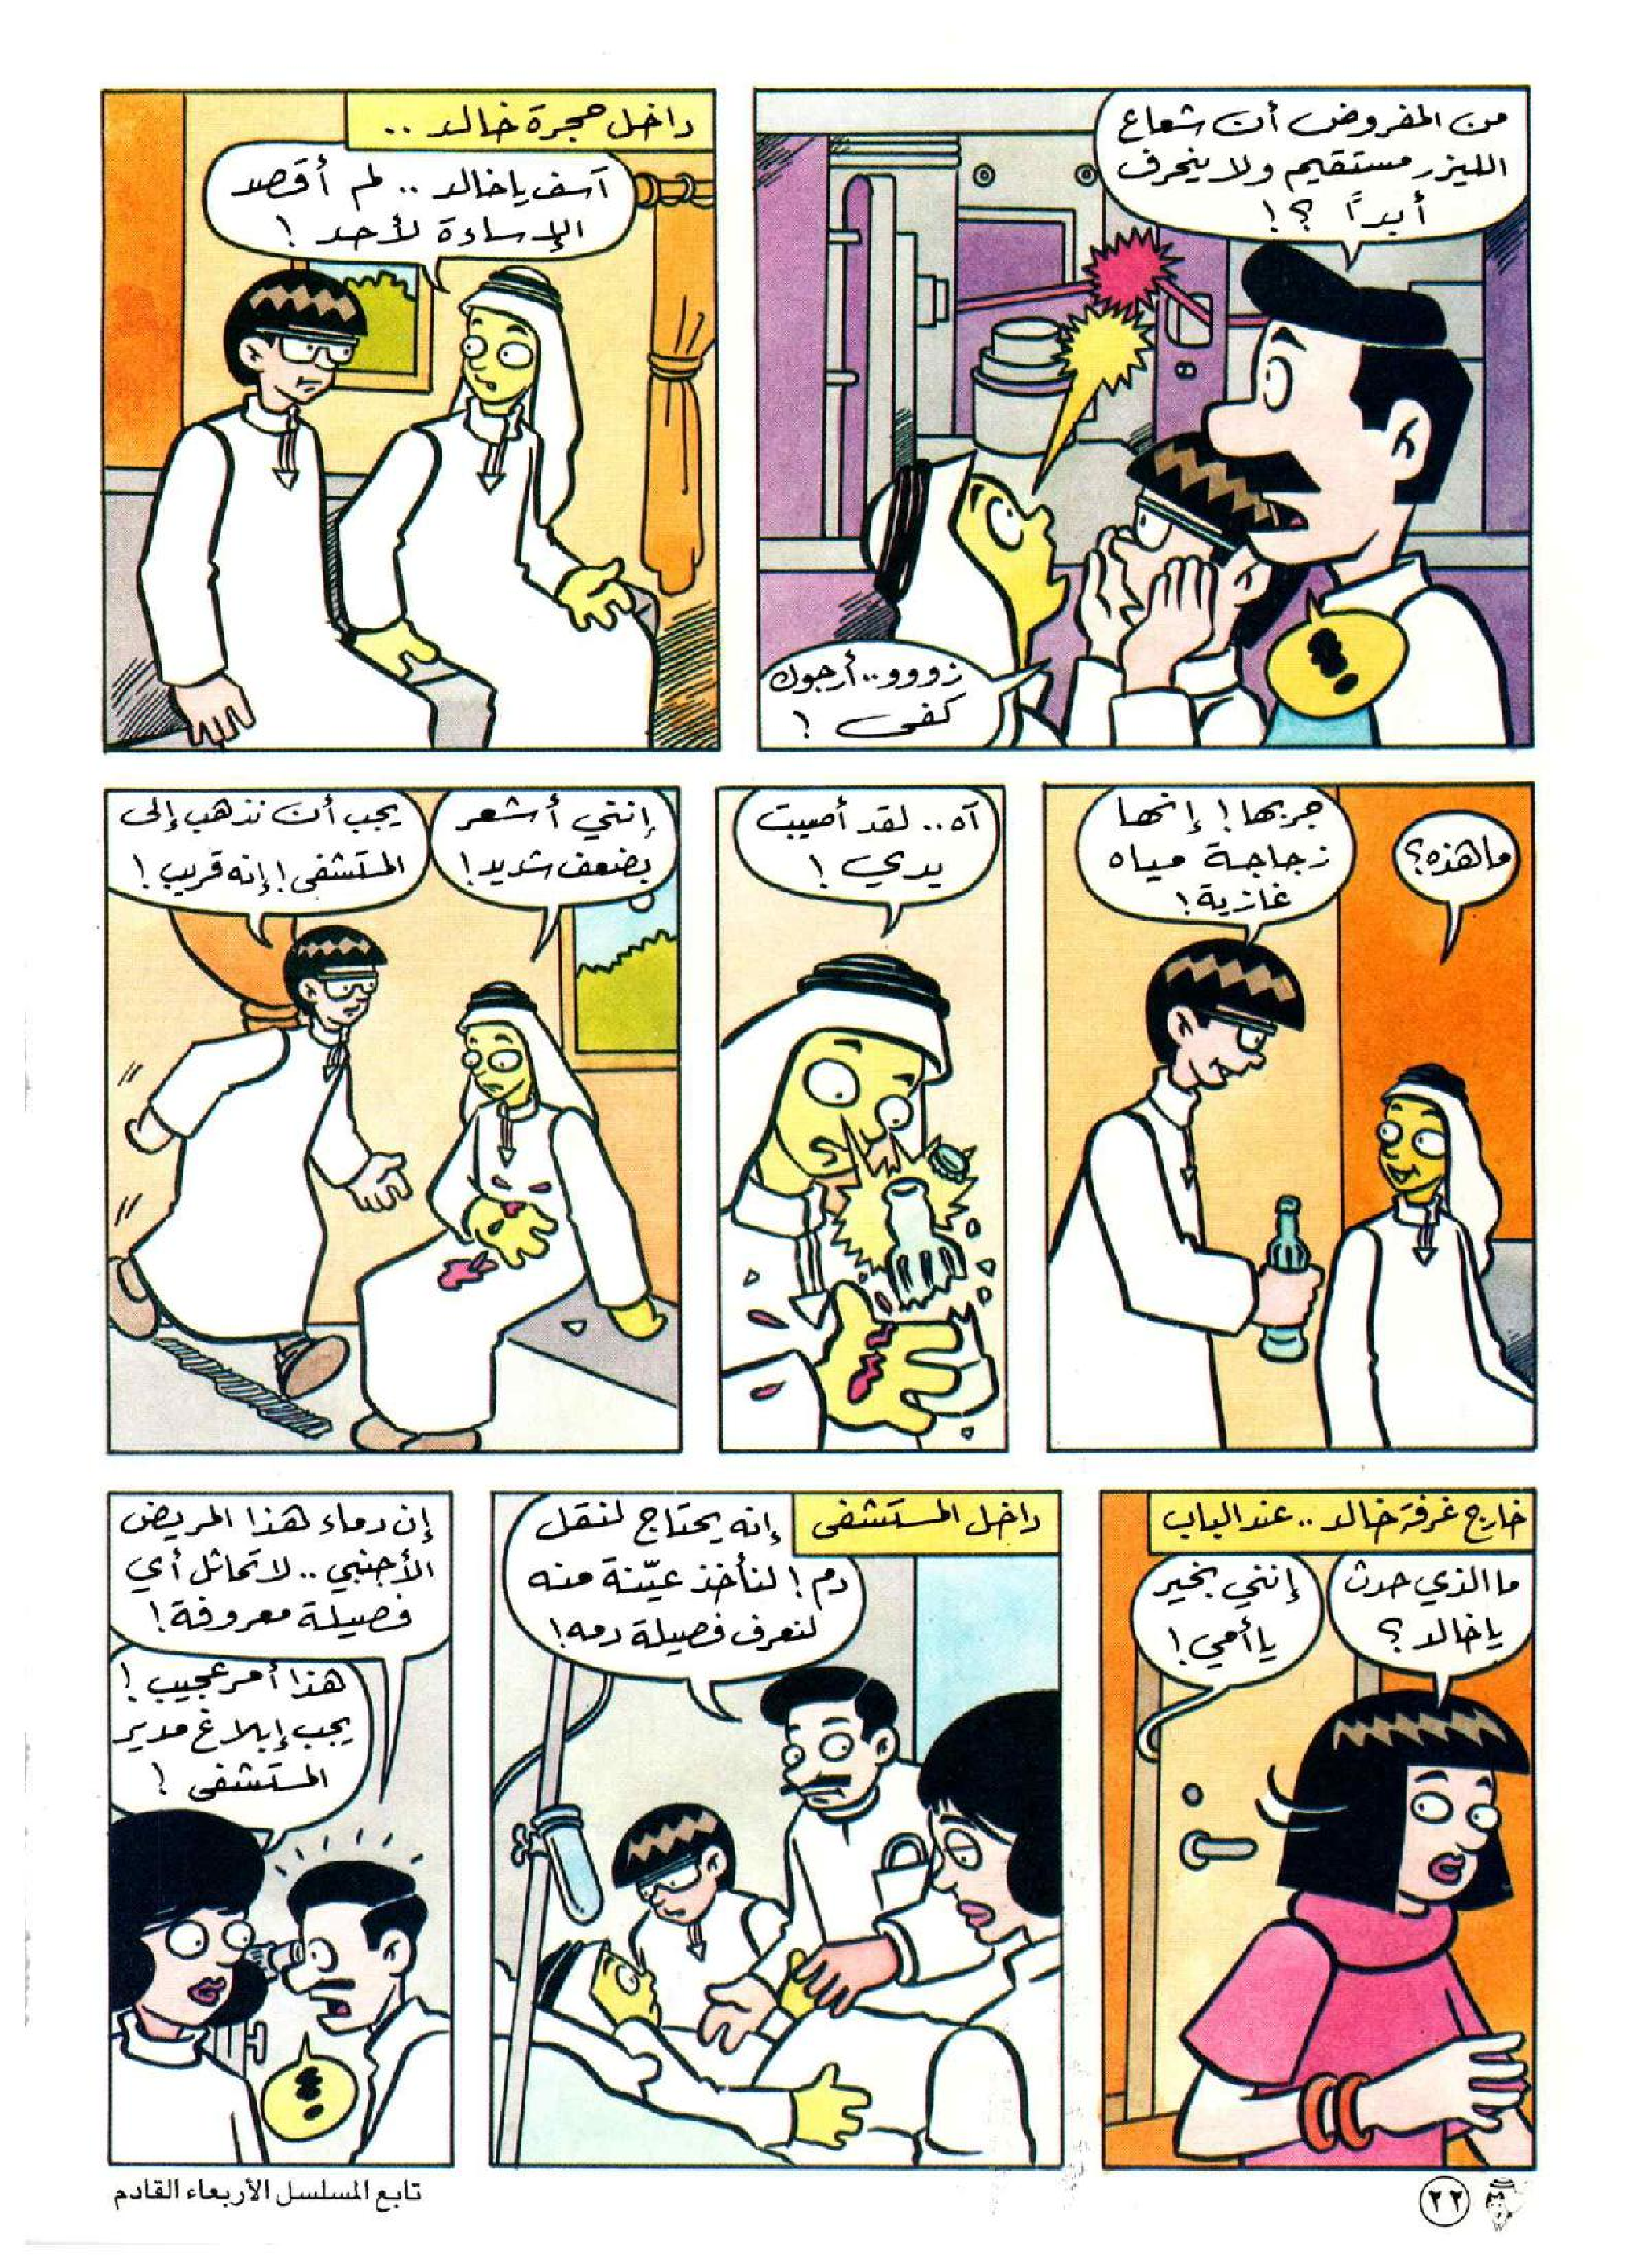 من المفروض أن شعاع
الليزر مستقيم ولا ينحرف
أبداً ؟!
زووو.. أرجوك
كفى !
داخل حجرة خالد ..
آسف يا خالد .. لم أقصد
الإساءة لأحد !
ما هذه؟
جربها ! إنها
زجاجة مياه
غازية !
آه.. لقد أصيبت
يدي !
إنني أشعر
بضعف شديد !
يجب أن نذهب إلى
المستشفى ! إنه قريب !
خارج غرفة خالد .. عند الباب
ما الذي حدث
يا خالد ؟
إنني بخير
يا أمي !
داخل المستشفى
إنه يحتاج لنقل
دم ! لنأخذ عيّنة منه
لنعرف فصيلة دمه !
إن دماء هذا المريض
الأجنبي .. لا تماثل أي
فصيلة معروفة !
هذا أمر عجيب !
يجب إبلاغ مدير
المستشفى !
٢٢
تابع المسلسل الأربعاء القادم